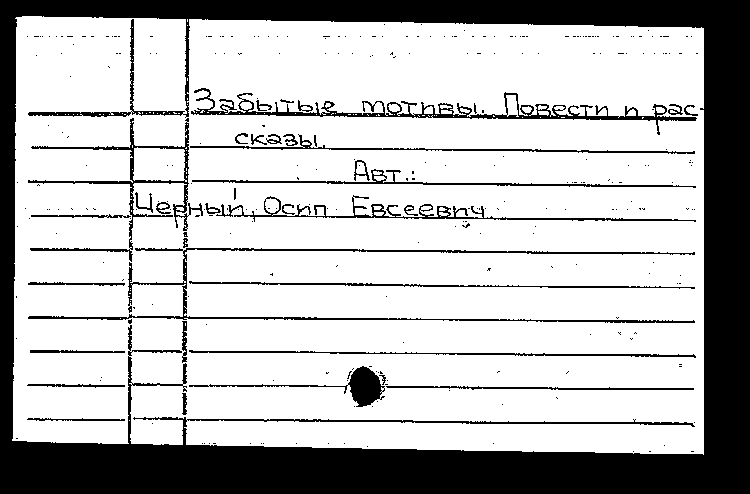 Забытые мотивы. Повести и рас-
сказы.
Авт.:
Черный, Осип Евсеевич